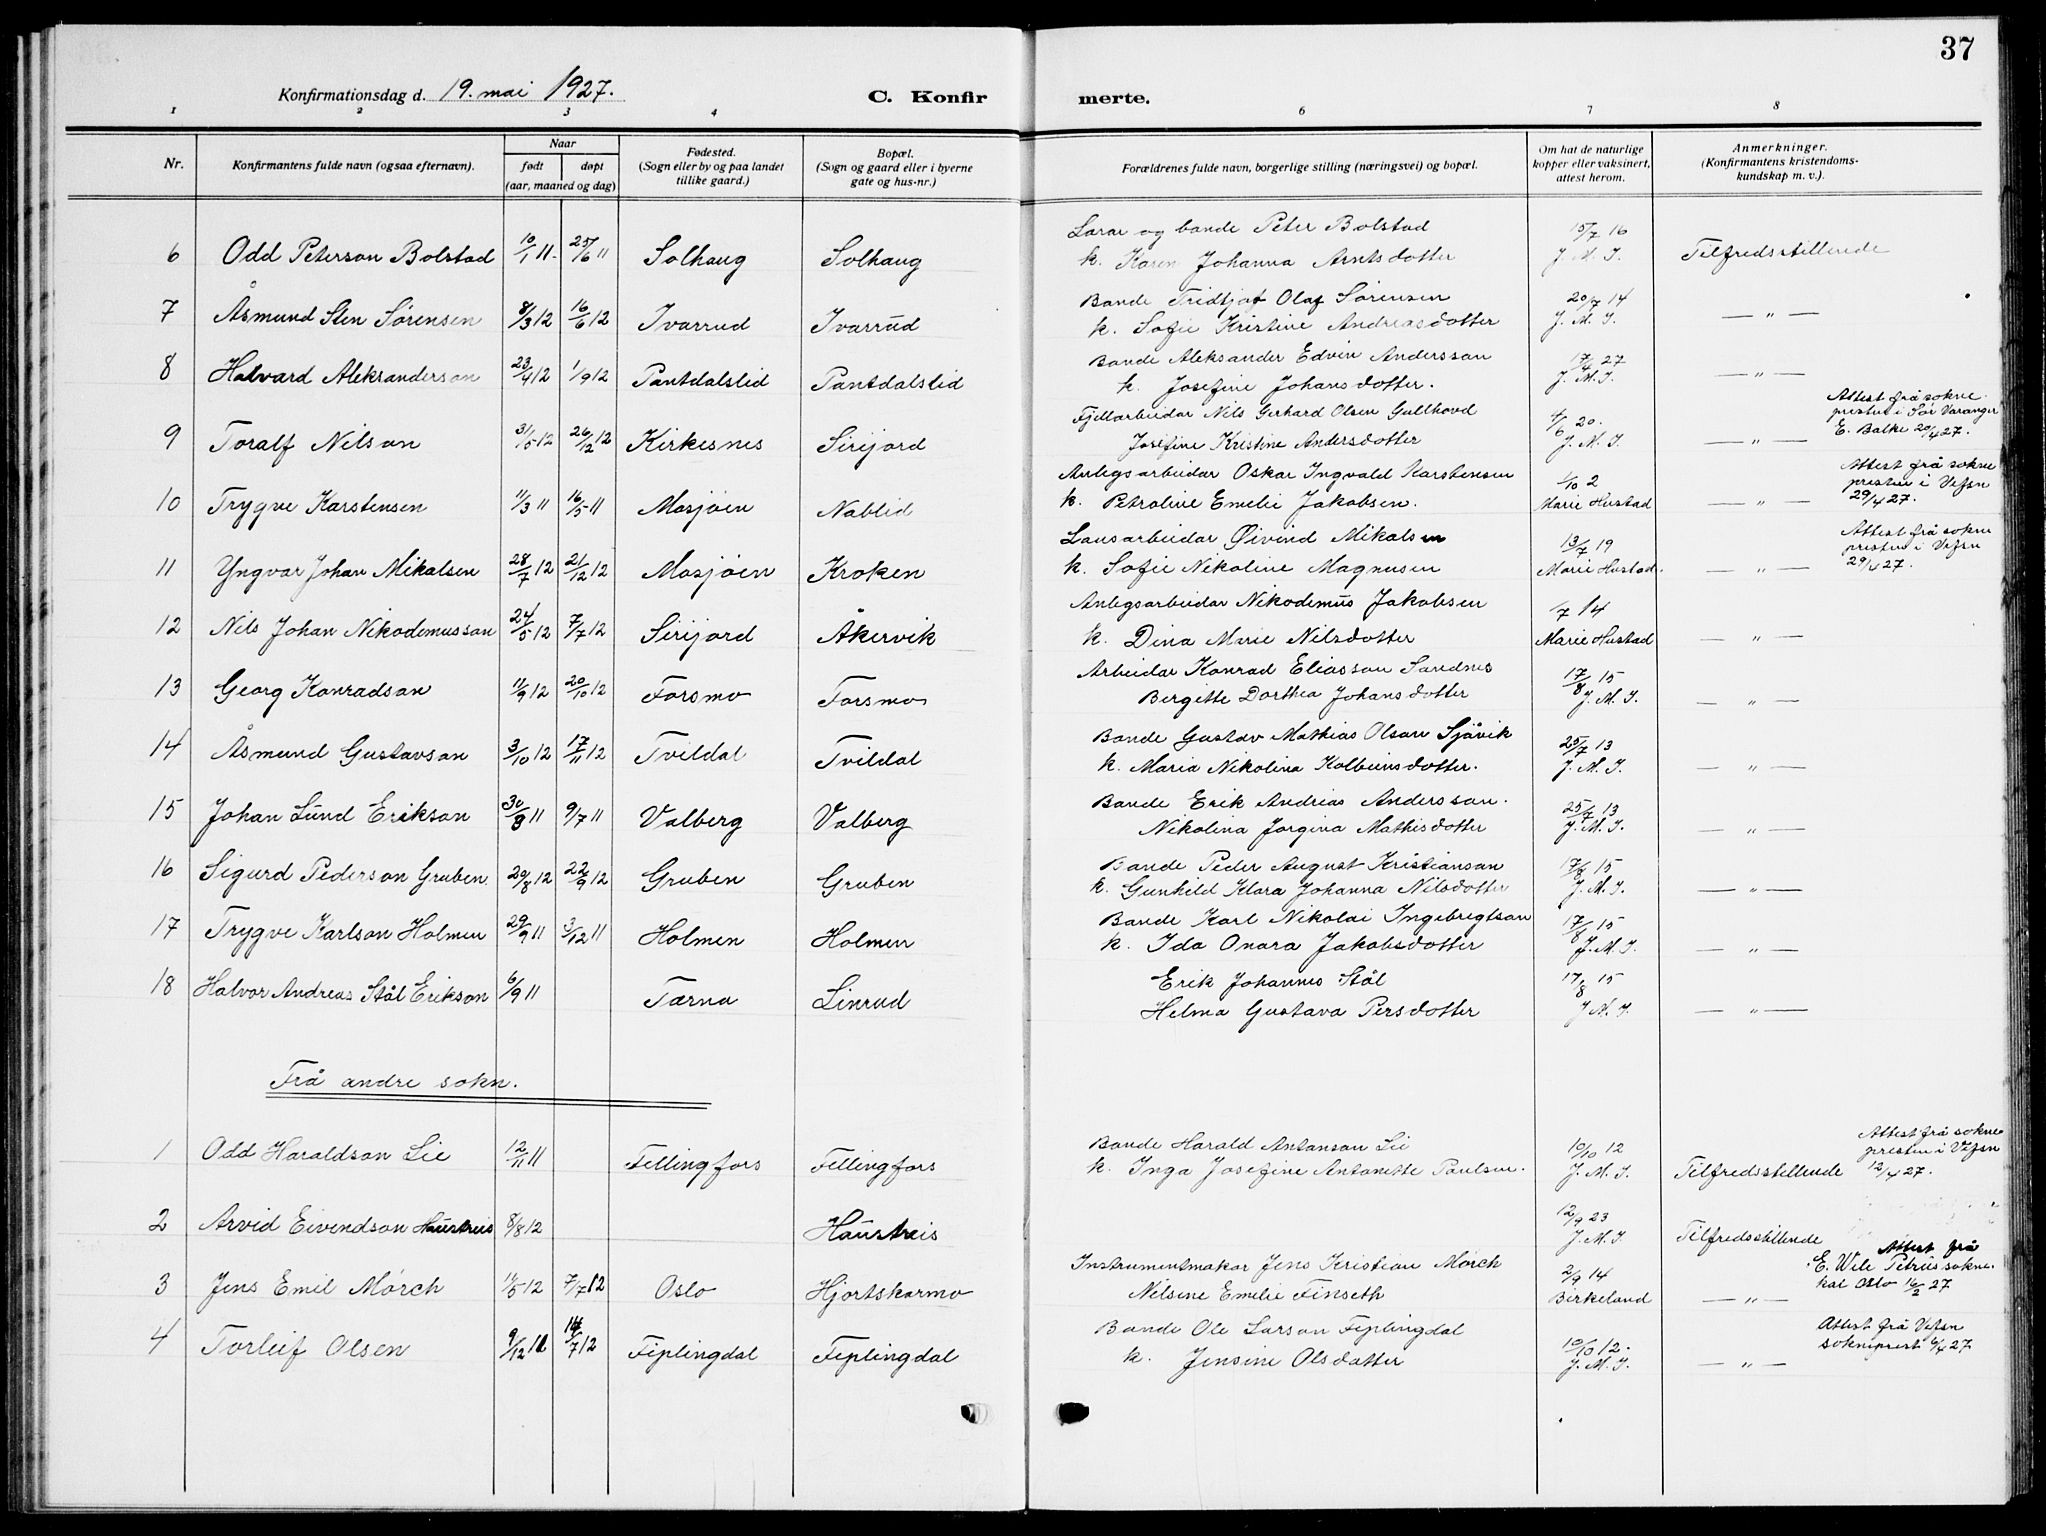 37
Konfirmationsdag d. 19. mai 1927.
C. Konfirmerte.
1 2 3 4 6 7 8
Nr.
Konfirmantens fulde navn (ogsaa efternavn).
Naar
født
døpt
(aar, maaned og dag)
Fødested.
(Sogn eller by og paa landet
tillike gaard.)
Bopæl.
(Sogn og gaard eller i byerne
gate og hus-nr.)
Forældrenes fulde navn, borgerlige stilling (næringsvei) og bopæl.
Om hat de naturlige
kopper eller vaksinert,
attest herom.
Anmerkninger.
(Konfirmantens kristendoms-
kundskap m. v.).
6 Odd Peterson Bolstad 10/1 11. 25/6 11 Solhaug Solhaug
Lærar og bonde Peter Bolstad
k. Karen Johanna Arntsdotter
15/7 16
J. M. J.
Tilfredsstillende
7 Åsmund Sten Sørensen 8/3 12 16/6 12 Ivarrud Ivarrud
Bonde Fridtjof Olaf Sørensen
k. Sofie Kristine Andreasdotter
20/7 14
J. M. J.
— " —
8 Halvard Aleksanderson 23/4 12 1/9 12 Pantdalslid Pantdalslid
Bonde Aleksander Edvin Andersson
k. Josefine Johansdotter.
17/4 27
J. M. J.
— " —
9 Toralf Nilson 31/5 12 26/12 12 Kirkesnes Sirijord
Fjellarbeidar Nils Gerhard Olsen Gullhovd
Josefine Kristine Andersdotter
4/6 20.
J. M. J.
— " —
Attest frå sokne-
presten i Sør Varanger
E. Balke 20/4 27.
10 Trygve Karstensen 11/3 11 16/5 11 Mosjøen Nablid
Anlegsarbeidar Oskar Ingvald Karstensen
k. Petroline Emelie Jakobsen.
1/10 2
Marie Hustad
— " —
Attest frå sokne
presten i Vefsn
29/4 27.
11 Yngvar Johan Mikalsen 28/7 12 21/12 12 Mosjøen Kroken
Lausarbeidar Øivind Mikalsen
k. Sofie Nikoline Magnusen
13/7 19
Marie Hustad.
— " —
Attest frå sokne
presten i Vefsn
29/4 27.
12 Nils Johan Nikodemusson 24/5 12 7/7 12 Sirijord Åkervik
Anlegsarbeidar Nikodemus Jakobsen
k. Dina Marie Nilsdotter
1/7 14
Marie Hustad
— " —
13 Georg Konradson 11/9 12 20/10 12 Forsmo Forsmo
Arbeidar Konrad Eliasson Sandnes
Bergitte Dorthea Johansdotter
17/8 15
J. M. J.
— " —
14 Åsmund Gustavson 3/10 12 17/11 12 Tvildal Tvildal
Bonde Gustav Mathias Olson Sjåvik
k. Maria Nikolina Kolbeinsdotter.
25/7 13
J. M. J.
— " —
15 Johan Lund Erikson 30/3 11 9/7 11 Valberg Valberg
Bonde Erik Andrias Andersson.
Nikolina Jorgina Mathisdotter
25/7 13
J. M. J.
— " —
16 Sigurd Pederson Gruben 20/8 12 22/9 12 Gruben Gruben
Bonde Peder August Kristianson
k. Gunhild Klara Johanna Nilsdotter
17/8 15
J. M. J.
— " —
17 Trygve Karlson Holmen 29/9 11 3/12 11 Holmen Holmen
Bonde Karl Nikolai Ingebregtson
k. Ida Onara Jakobsdotter
17/8 15
J. M. J.
— " —
18 Halvor Andreas Stål Erikson 6/9 11 Tærna Linrud
Erik Johannes Stål
Helma Gustava Persdotter
17/8 15
J. M. J.
— " —
Frå andre sokn.
1 Odd Haraldson Lie 12/11 11 Fellingfors Fellingfors
Bonde Harald Antonson Lie
k. Inga Josefine Antonette Paulsen.
10/10 12
J. M. J.
Tilfredsstillende
Attest frå sokne
presten i Vefsn
12/4 27.
2 Arvid Eivendson Haustreis 8/8 12 Haustreis
12/9 23
J. M. J.
Tilfredsstillende
3 Jens Emil Mörch 11/5 12 7/7 12 Oslo Hjortskarmo
Instrumentmakar Jens Kristian Mörch
Nilsine Emelie Finseth
2/9 14
Birkeland
— " —
Attest frå
E. Wele Petrus sokne-
kal Oslo 16/2 27
4 Torleif Olsen 9/12 11 14/7 12 Fiplingdal Fiplingdal
Bonde Ole Larson Fiplingdal
k. Jensine Olsdotter
10/10 12.
J. M. J.
— " —
Attest frå Vefsn
sokneprest 6/4 27